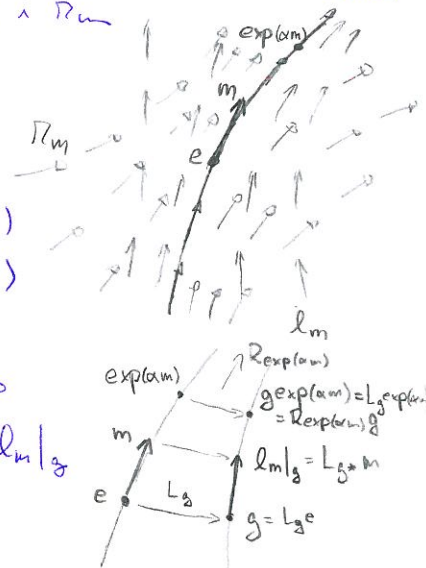 ∧ r_m
exp(αm)
m
r_m
e
)
)
l_m
R_exp(αm)
exp(αm)
g exp(αm) = L_g exp(α
= R_exp(αm) g
m
l_m|_g
l_m|_g = L_g* m
L_g
e
g = L_g e